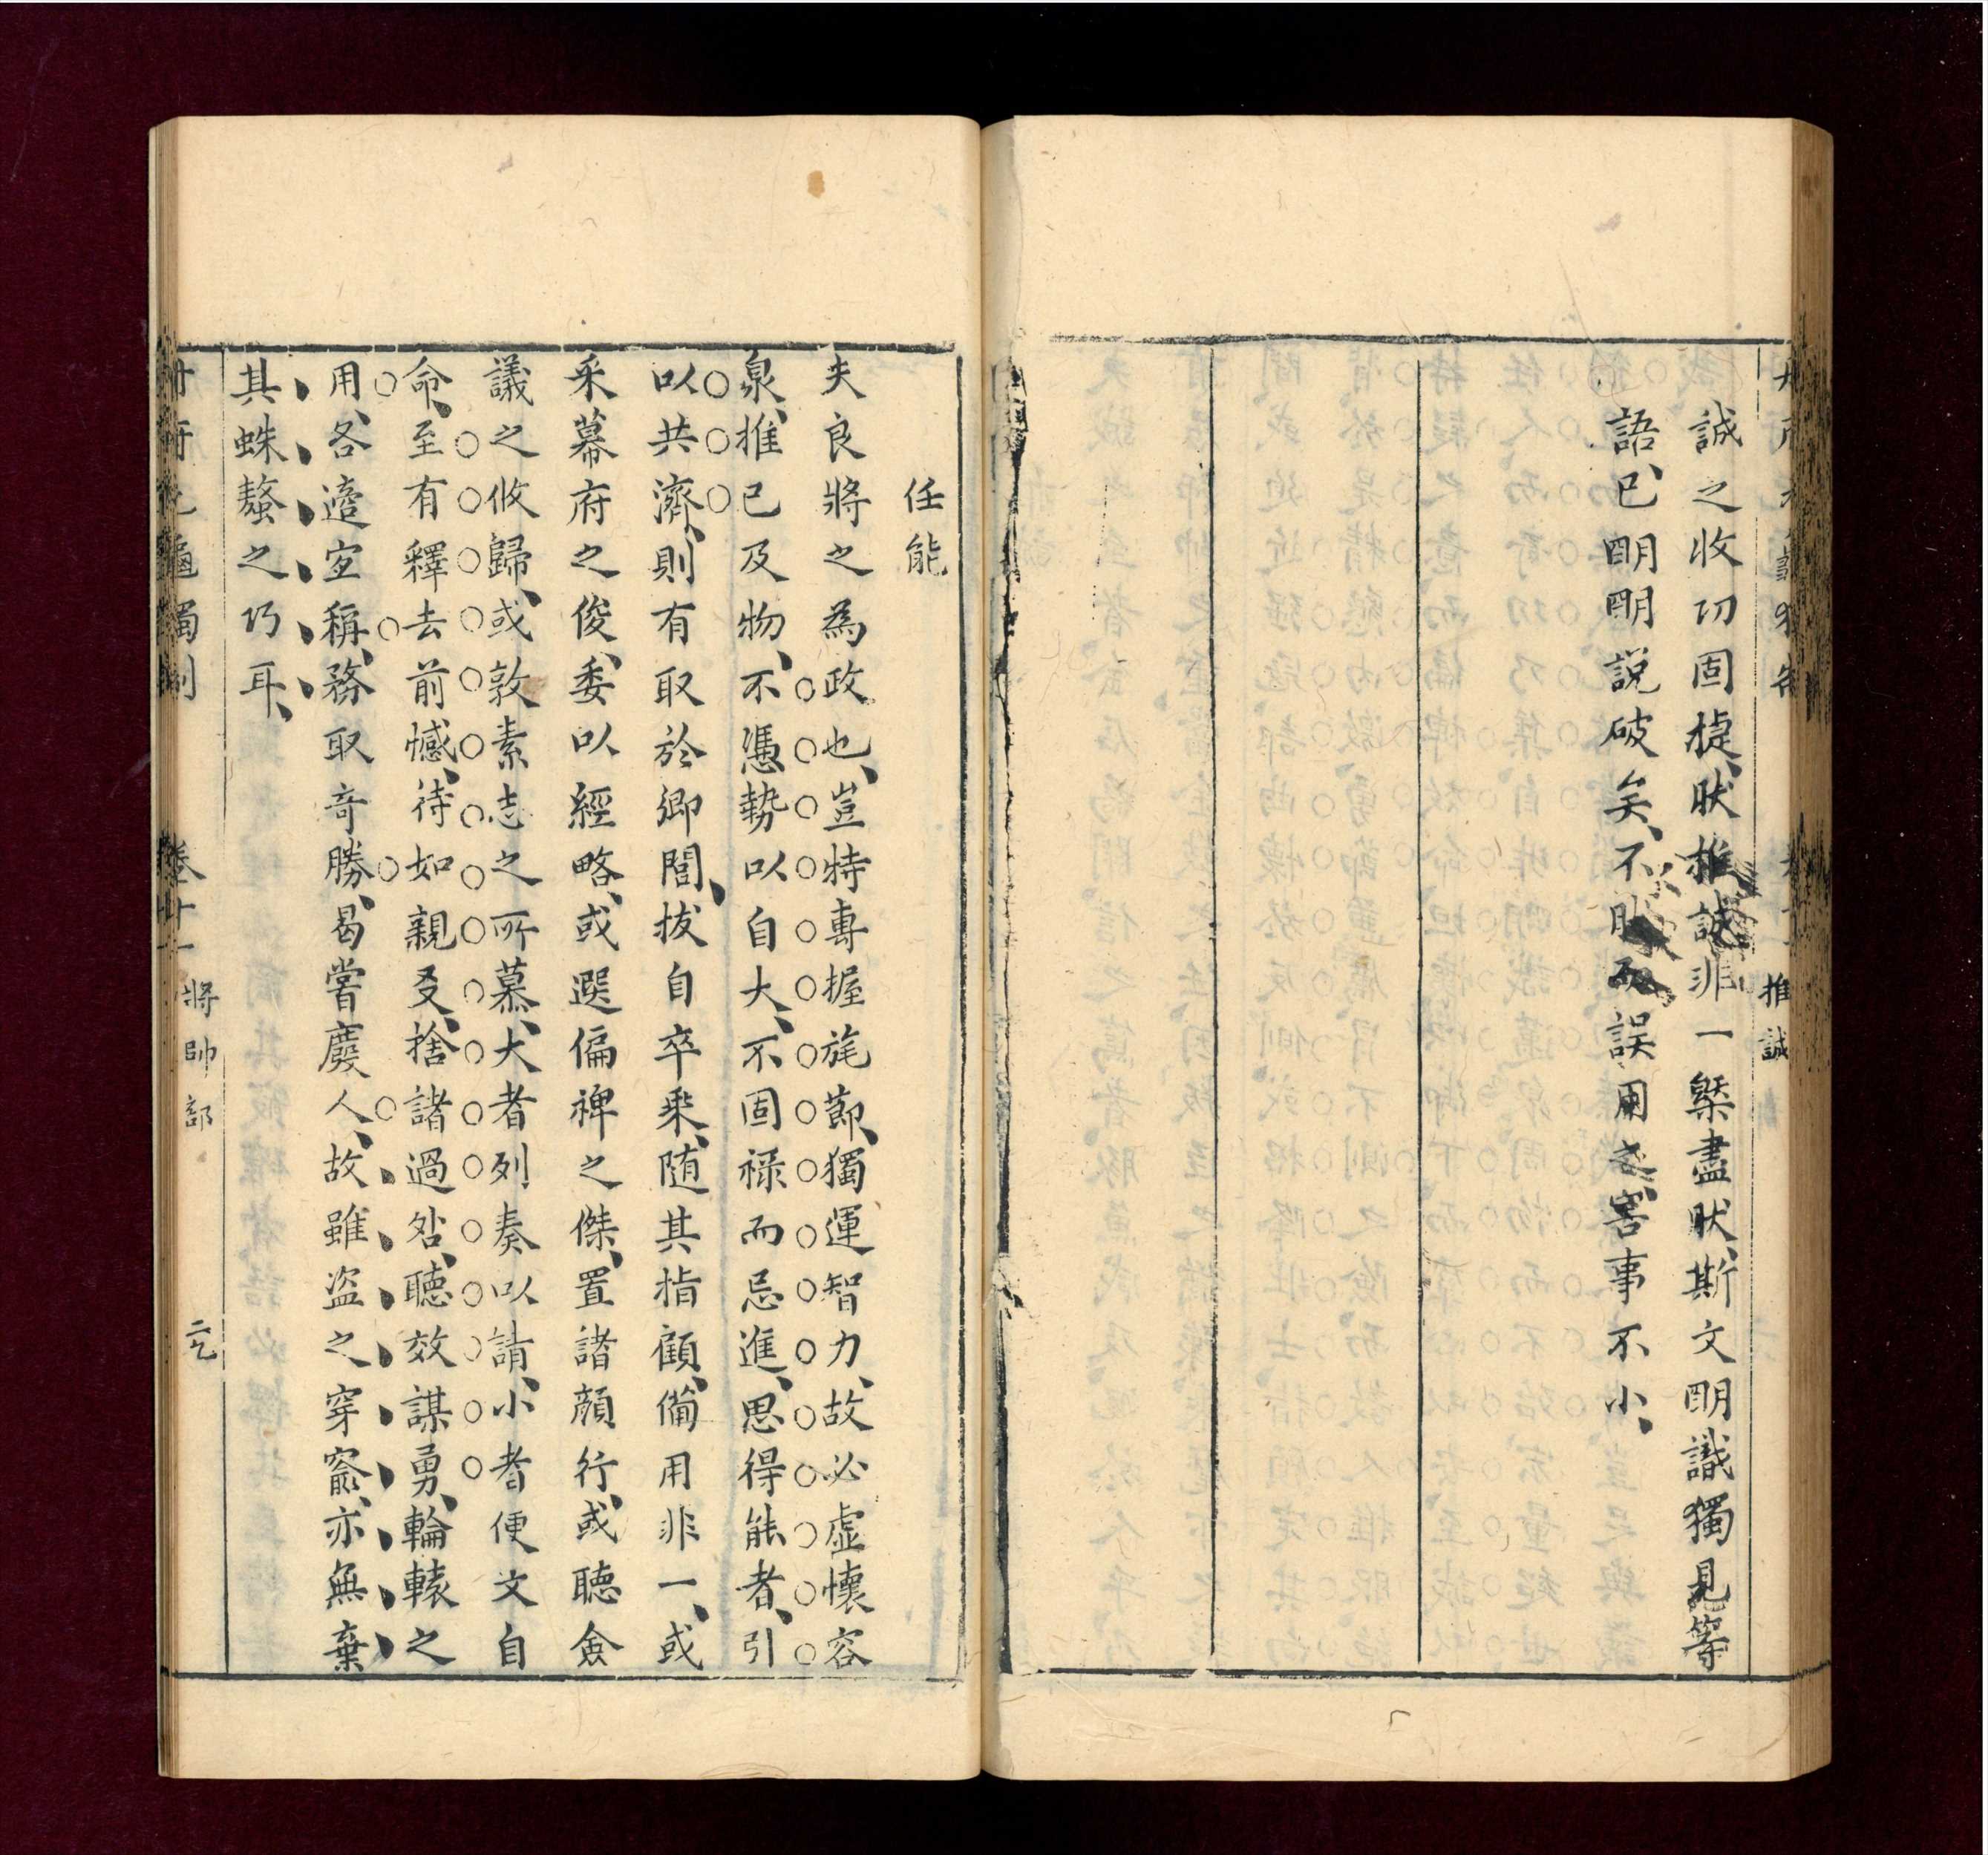 誠之收功固㨗、肰推誠非一槩盡肰、斯文明識獨見等
語、已明明說破矣、不肰而誤用之、害事不小、
推誠
任能
夫良將之為政也、豈特專握旄節、獨運智力、故必虛懷容
泉、推已及物、不憑勢以自大、不固祿而忌進、思得能者、引
以共濟、則有取於鄉閭、拔自卒乘、随其指顧、備用非一、或
采幕府之俊、委以經略、或選偏裨之傑、置諸顔行、或聽僉
議之攸歸、或敦素志之所慕、大者列奏以請、小者便文自
命、至有釋去前憾、待如親㕛、捨諸過咎、聽效謀勇、輪轅之
用、各適宜稱、務取奇勝、曷嘗廢人、故雖盜之穿窬、亦無棄
其蛛蝥之巧耳、
卷十一
將帥部